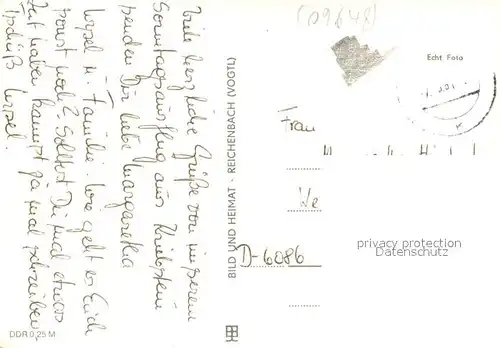 Viele herzliche Grüße von unserem
Sonntagsausflug aus Kriebstein
senden Dir liebe Margaretha
Ursel u. Familie. Wie geht es Euch
sonst noch? Solltest Du mal etwas
Zeit haben kannst ja mal schreiben,
Ursel.
DDR 0,25 M
BILD UND HEIMAT · REICHENBACH (VOGTL)
(09648)
Echt Foto
Frau
We
D-6086
privacy protection
Datenschutz